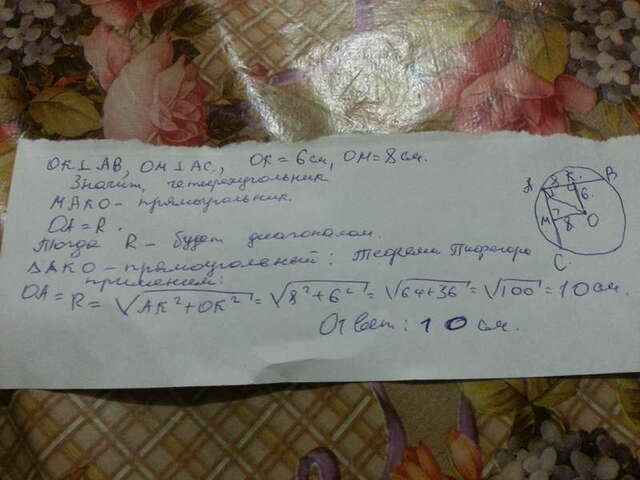 OK⊥AB, OM⊥AC, OK = 6 см, OM = 8 см.
Значит, четырехугольник
MAKO - прямоугольник.
OA = R.
Тогда R - будет диагональю.
ΔAKO - прямоугольный: Теорема Пифагора
применим:
OA = R = √AK²+OK² = √8²+6² = √64+36 = √100 = 10 см.
Ответ: 10 см.
A 8 K B
6
M 8 O
C